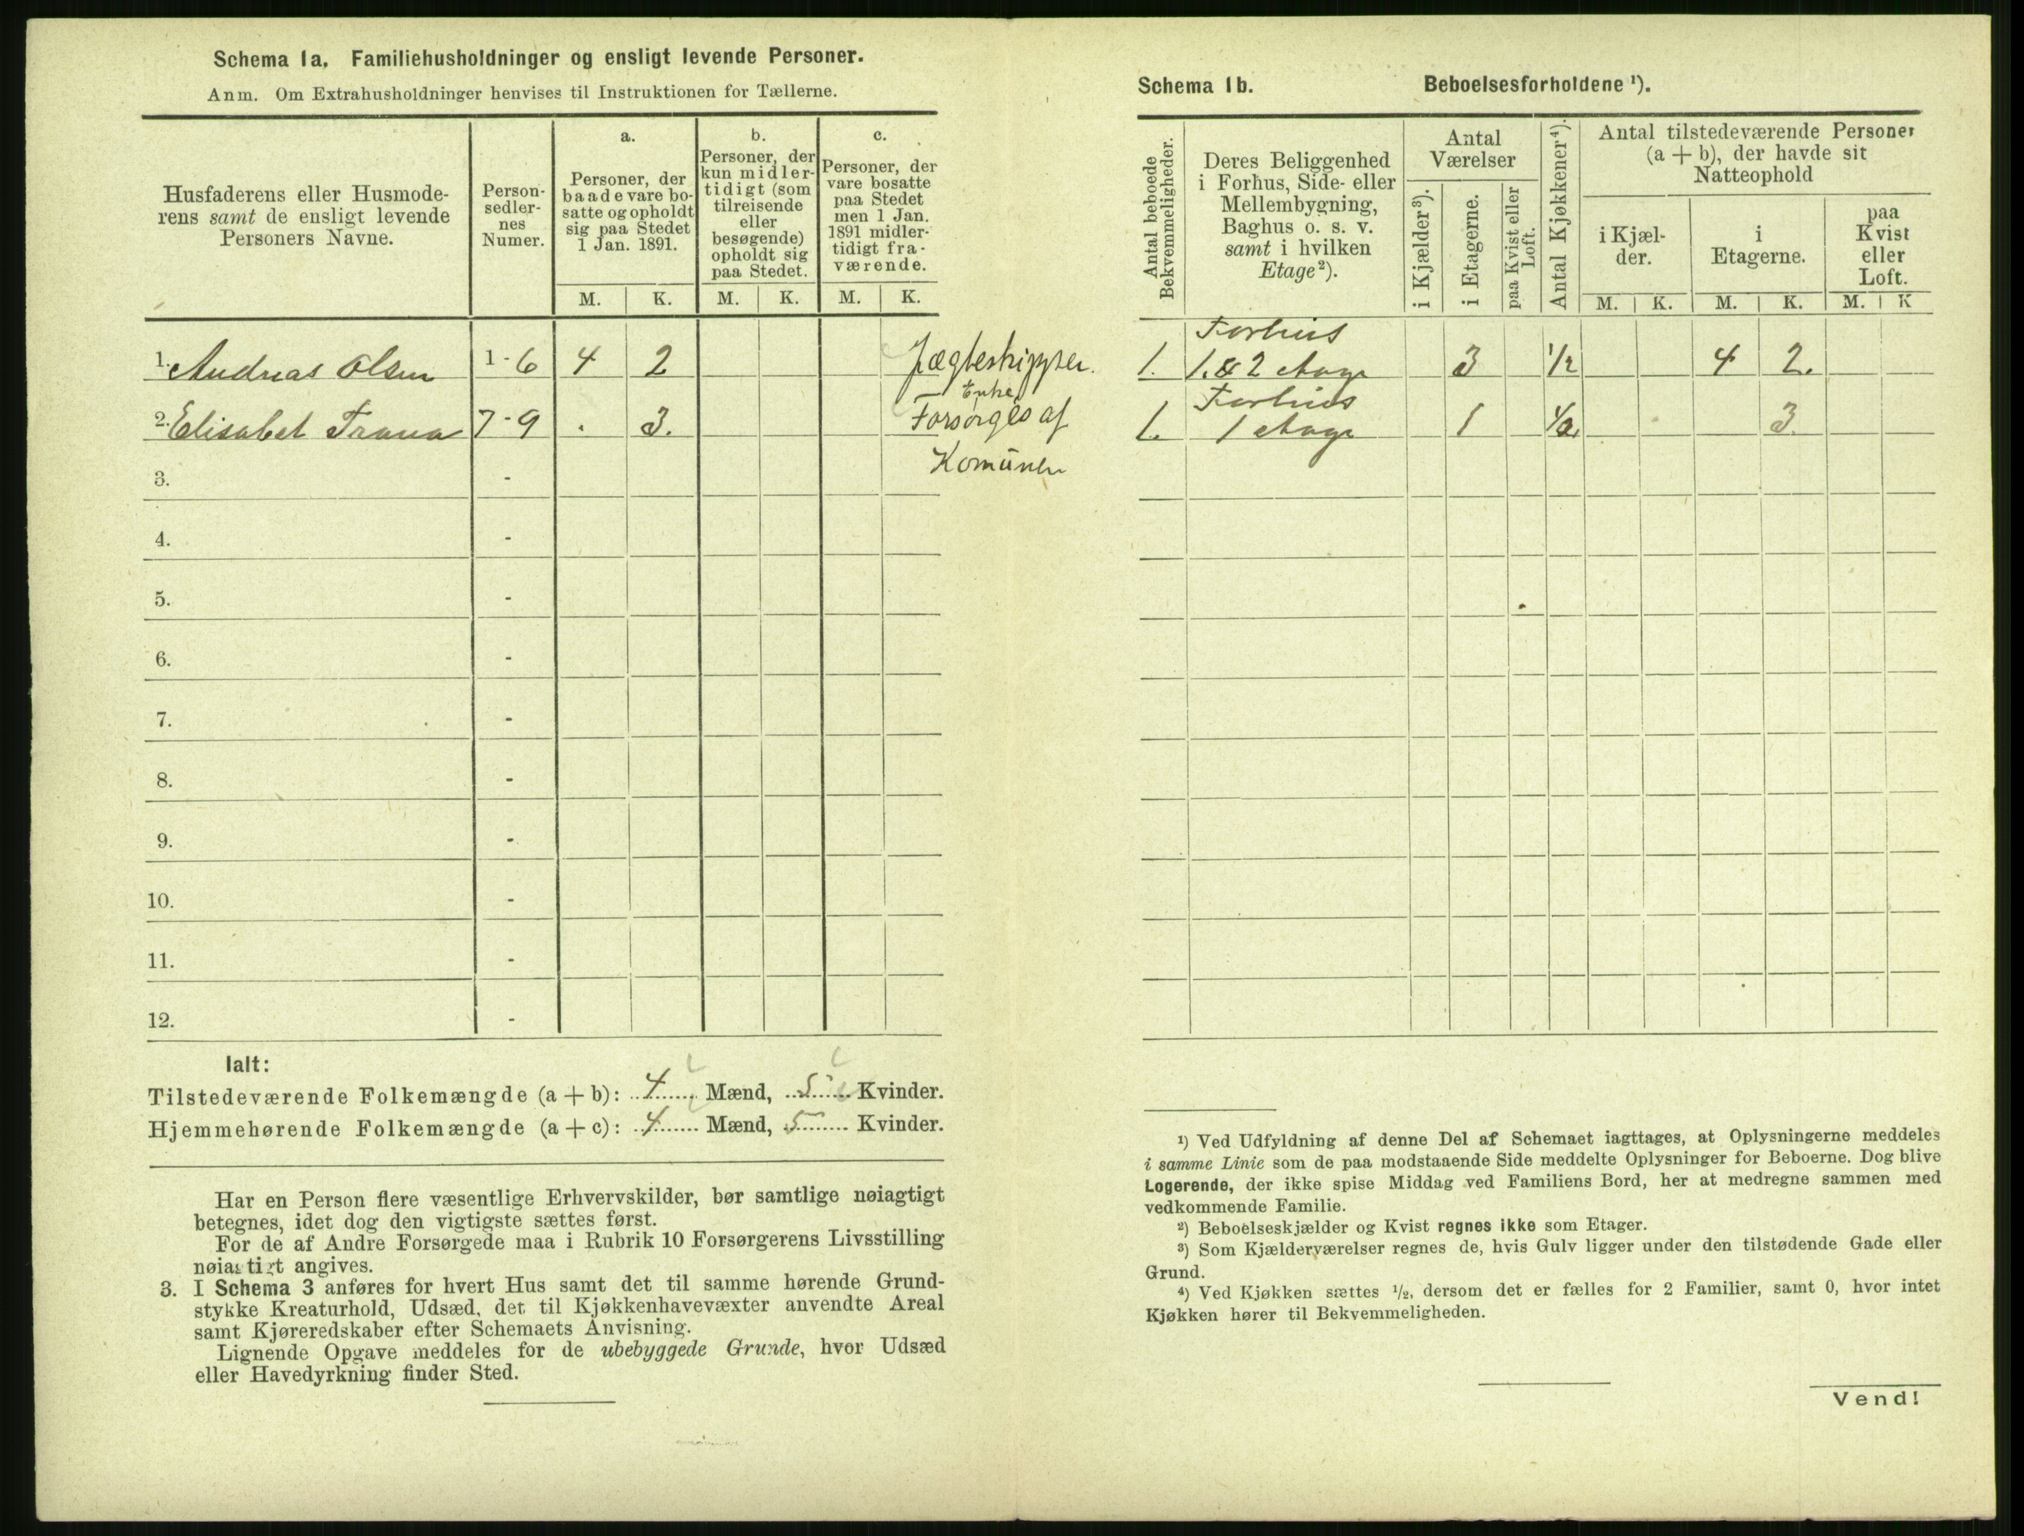 Schema 1a. Familiehusholdninger og ensligt levende Personer.
Anm. Om Extrahusholdninger henvises til Instruktionen for Tællerne.
Husfaderens eller Husmode-
rens samt de ensligt levende
Personers Navne.
Person-
sedler-
nes
Numer.
a.
Personer, der
baade vare bo-
satte og opholdt
sig paa Stedet
1 Jan. 1891.
b.
Personer, der
kun midler-
tidigt (som
tilreisende
eller
besøgende)
opholdt sig
paa Stedet.
c.
Personer, der
vare bosatte
paa Stedet
men 1 Jan.
1891 midler-
tidigt fra-
værende.
M. K. M. K. M. K.
1. Andreas Olsen 1-6 4 2 Jægteskipper.
Enke
2. Elisabet Trana 7-9 . 3. Forsørges af
Komunen
3. -
4. -
5. -
6. -
7. -
8. -
9. -
10. -
11. -
12. -
Ialt:
Tilstedeværende Folkemængde (a + b): 4 Mænd, 5 Kvinder.
Hjemmehørende Folkemængde (a + c): 4 Mænd, 5 Kvinder.
Har en Person flere væsentlige Erhvervskilder, bør samtlige nøiagtigt
betegnes, idet dog den vigtigste sættes først.
For de af Andre Forsørgede maa i Rubrik 10 Forsørgerens Livsstilling
nøiagtigt angives.
3. I Schema 3 anføres for hvert Hus samt det til samme hørende Grund-
stykke Kreaturhold, Udsæd, det til Kjøkkenhavevæxter anvendte Areal
samt Kjøreredskaber efter Schemaets Anvisning.
Lignende Opgave meddeles for de ubebyggede Grunde, hvor Udsæd
eller Havedyrkning finder Sted.
Schema 1b. Beboelsesforholdene ¹).
Antal beboede
Bekvemmeligheder.
Deres Beliggenhed
i Forhus, Side- eller
Mellembygning,
Baghus o. s. v.
samt i hvilken
Etage ²).
Antal
Værelser
i Kjælder ³).
i Etagerne.
paa Kvist eller
Loft.
Antal Kjøkkener ⁴).
Antal tilstedeværende Personer
(a + b), der havde sit
Natteophold
i Kjæl-
der.
i
Etagerne.
paa
Kvist
eller
Loft.
M. K. M. K. M. K
Forhus
1. 1. & 2 Etage 3 1/2 4 2.
Forhus
1. 1 Etage 1 1/2 3.
¹) Ved Udfyldning af denne Del af Schemaet iagttages, at Oplysningerne meddeles
i samme Linie som de paa modstaaende Side meddelte Oplysninger for Beboerne. Dog blive
Logerende, der ikke spise Middag ved Familiens Bord, her at medregne sammen med
vedkommende Familie.
²) Beboelseskjælder og Kvist regnes ikke som Etager.
³) Som Kjælderværelser regnes de, hvis Gulv ligger under den tilstødende Gade eller
Grund.
⁴) Ved Kjøkken sættes ½, dersom det er fælles for 2 Familier, samt 0, hvor intet
Kjøkken hører til Bekvemmeligheden.
Vend!